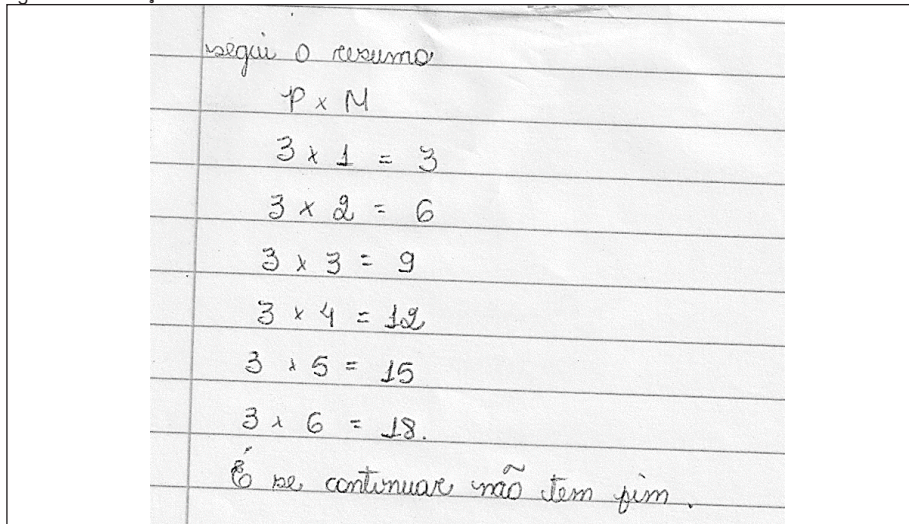 segui o resumo
P x N
3 x 1 = 3
3 x 2 = 6
3 x 3 = 9
3 x 4 = 12
3 x 5 = 15
3 x 6 = 18.
É se continuar não tem fim.